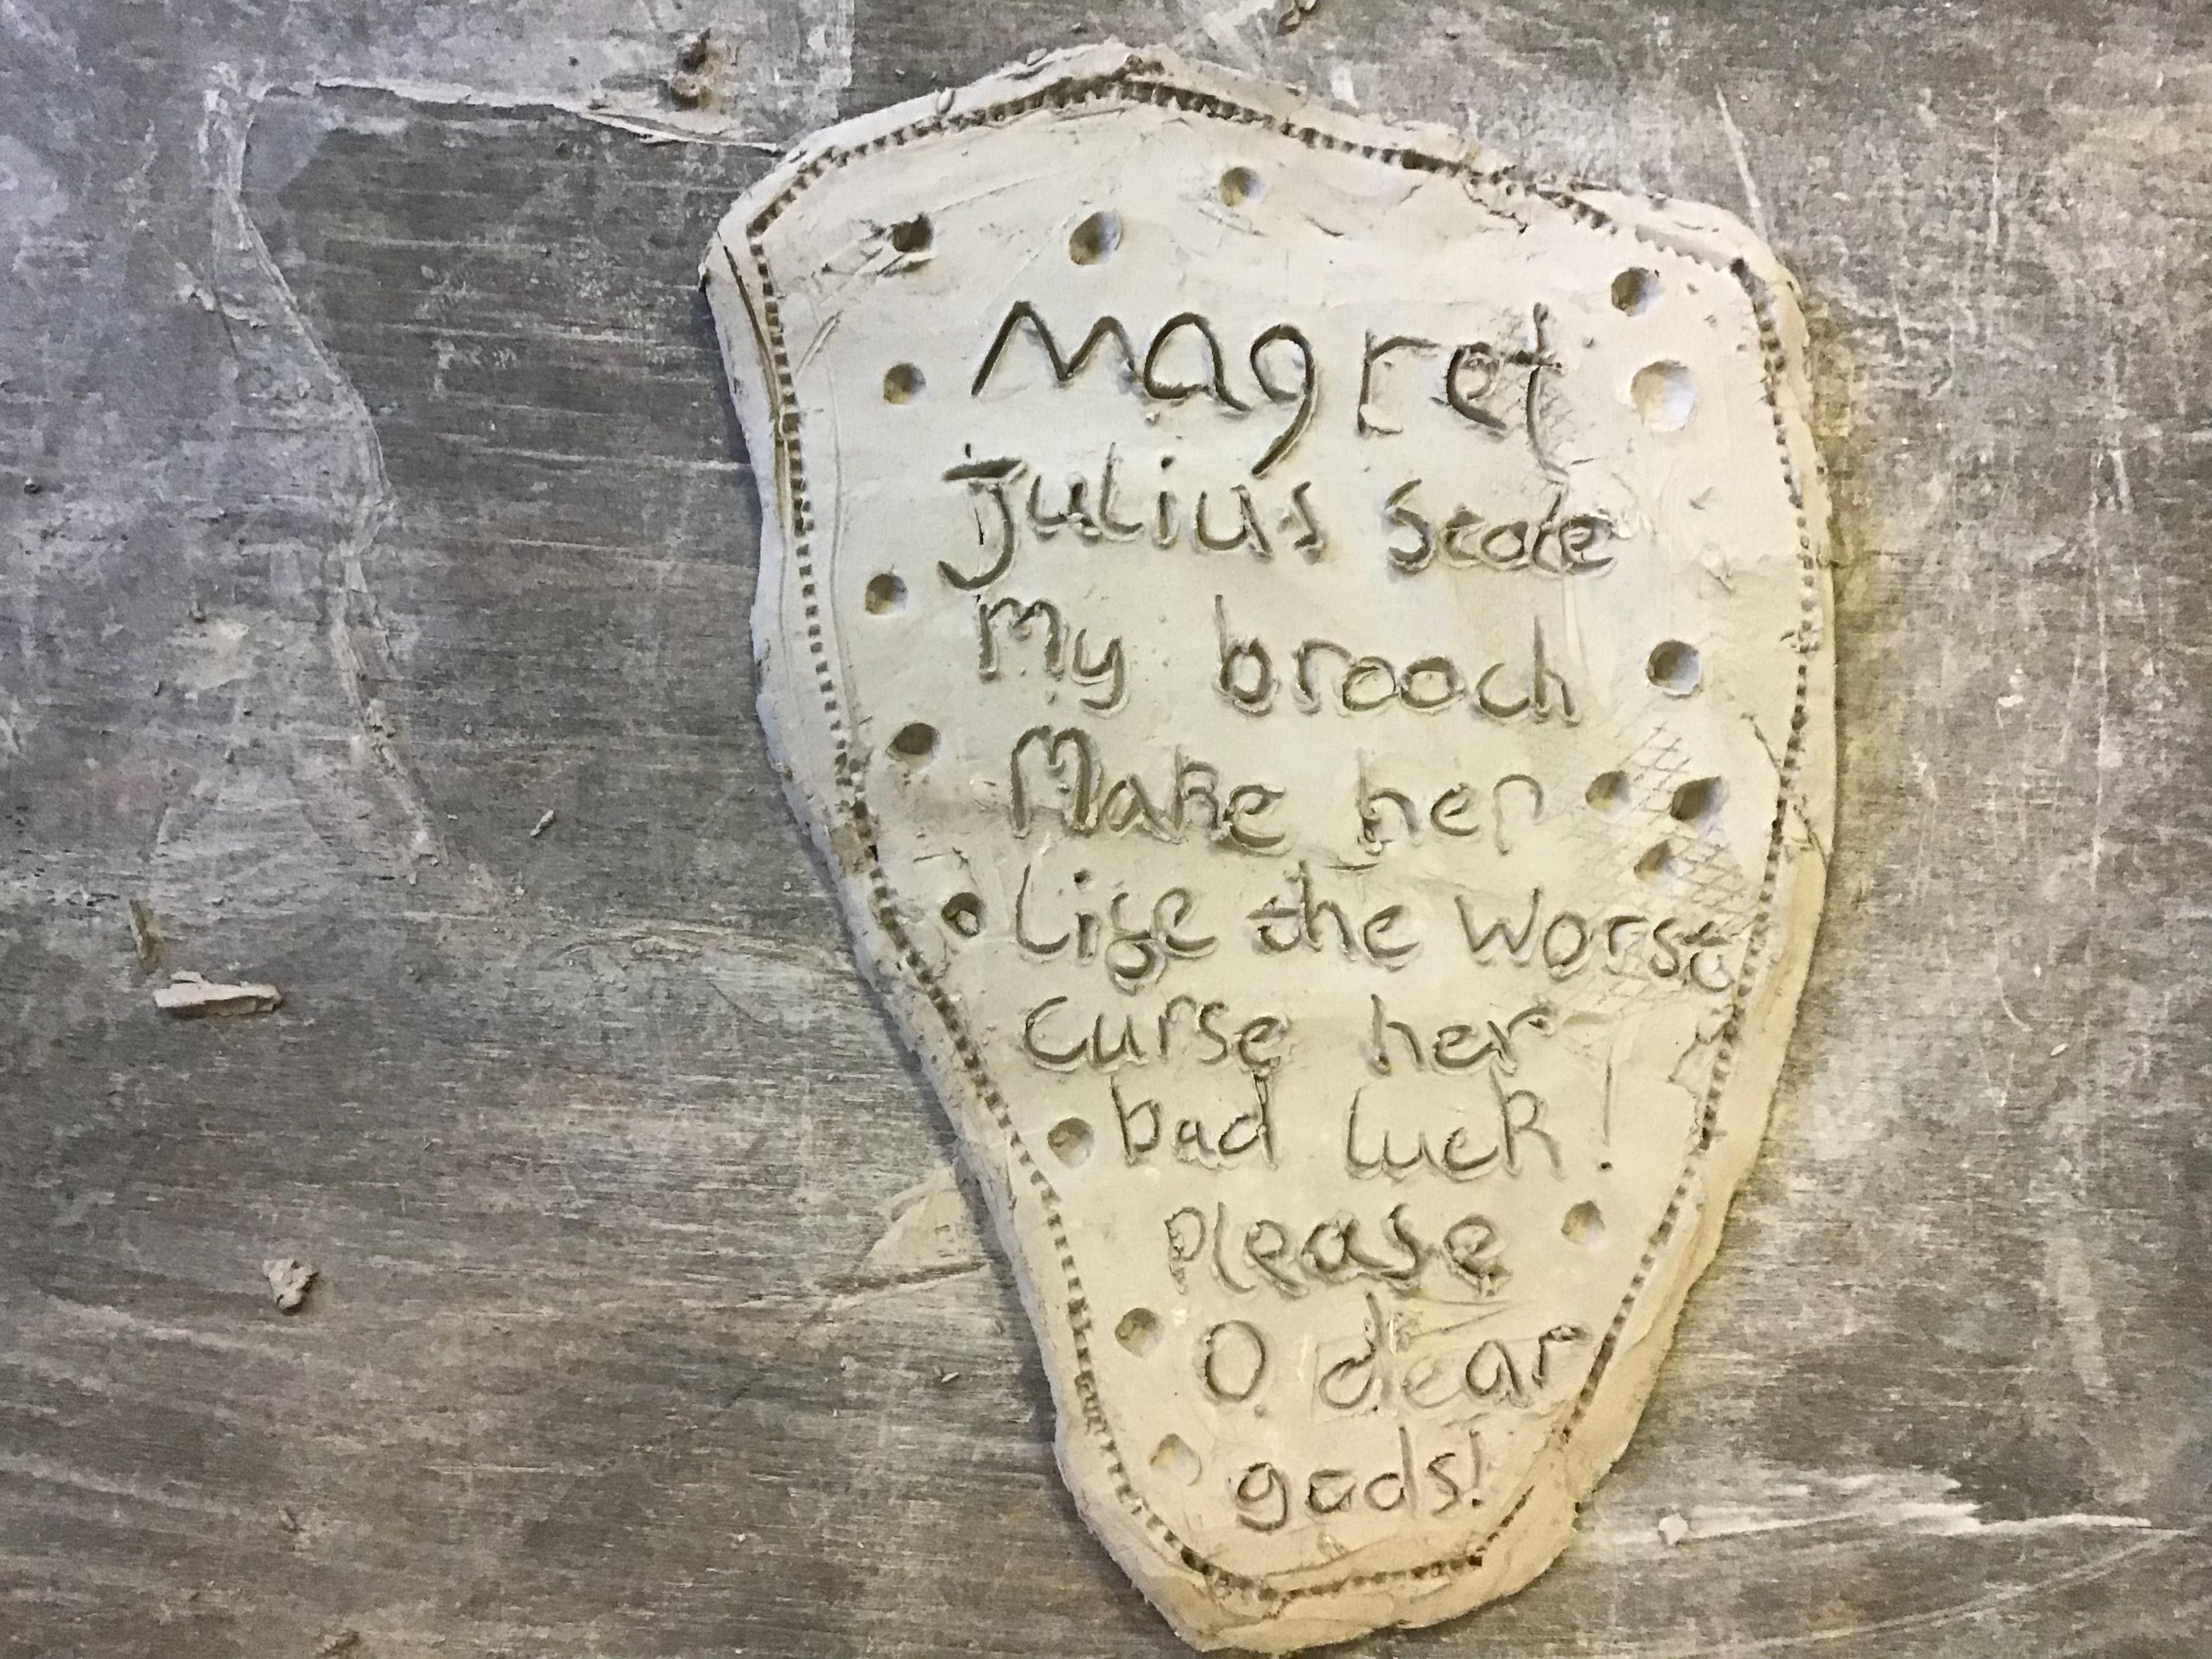 Magret
Julius
My brooch
Make her
Life the Worst
Curse her
bad luck!
please
O dear
gods!